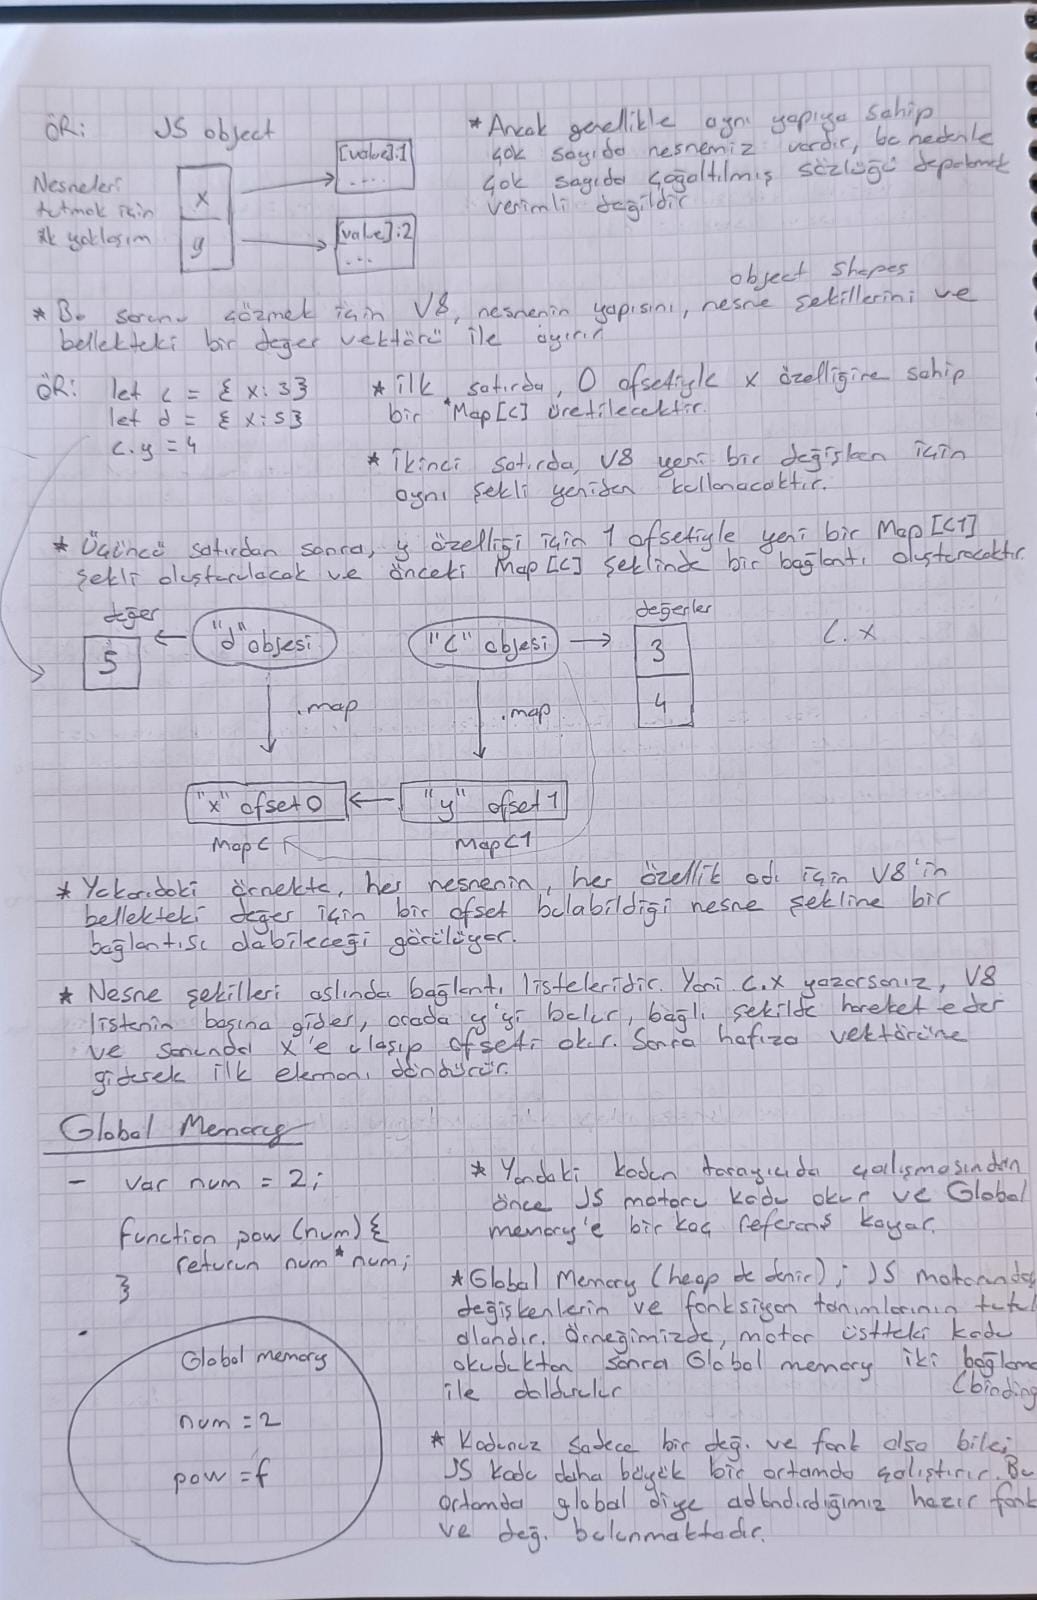 ÖR: JS object
Nesneleri
tutmak için
ilk yaklaşım
x
y
[value]:1
....
[value]:2
...
* Ancak genellikle aynı yapıya sahip
çok sayıda nesnemiz vardır, bu nedenle
çok sayıda çoğaltılmış sözlüğü depolamak
verimli değildir
object shapes
* Bu sorunu çözmek için V8, nesnenin yapısını, nesne şekillerini ve
bellekteki bir değer vektörü ile ayırır
ÖR: let c = { x: 3}
let d = { x: 5}
c.y = 4
* ilk satırda, 0 ofsetiyle x özelliğine sahip
bir "Map[C] üretilecektir.
* İkinci satırda, V8 yeni bir değişken için
aynı şekli yeniden kullanacaktır.
* Üçüncü satırdan sonra, y özelliği için 1 ofsetiyle yeni bir Map[C1]
şekli oluşturulacak ve önceki Map[C] şeklinde bir bağlantı oluşturacaktır.
değer
5
"d" objesi
"C" objesi
değerler
3
4
C.x
.map
.map
"x" ofset 0
"y" ofset 1
MapC
MapC1
* Yukarıdaki örnekte, her nesnenin, her özellik adı için V8'in
bellekteki değer için bir ofset bulabildiği nesne şekline bir
bağlantısı olabileceği görülüyor.
* Nesne şekilleri aslında bağlantı listeleridir. Yani c.x yazarsanız, V8
listenin başına gider, orada y'yi bulur, bağlı şekilde hareket eder
ve sonunda x'e ulaşıp ofseti okur. Sonra hafıza vektörüne
gidecek ilk elemanı döndürür.
Global Memory
- var num = 2;
function pow (num) {
return num * num;
}
* Yandaki kodun tarayıcıda çalışmasından
önce JS motoru kodu okur ve Global
memory'e bir kaç referans koyar.
* Global Memory (heap de denir); JS motorunda
değişkenlerin ve fonksiyon tanımlarının tutul
alandır. Örneğimizde, motor üstteki kodu
okuduktan sonra Global memory iki bağlama
ile doldurulur (binding
Global memory
num = 2
pow = f
* Kodunuz sadece bir değ. ve fonk olsa bile;
JS kodu daha büyük bir ortamda çalıştırır. Bu
ortamda global diye adlandırdığımız hazır fonk
ve değ. bulunmaktadır.